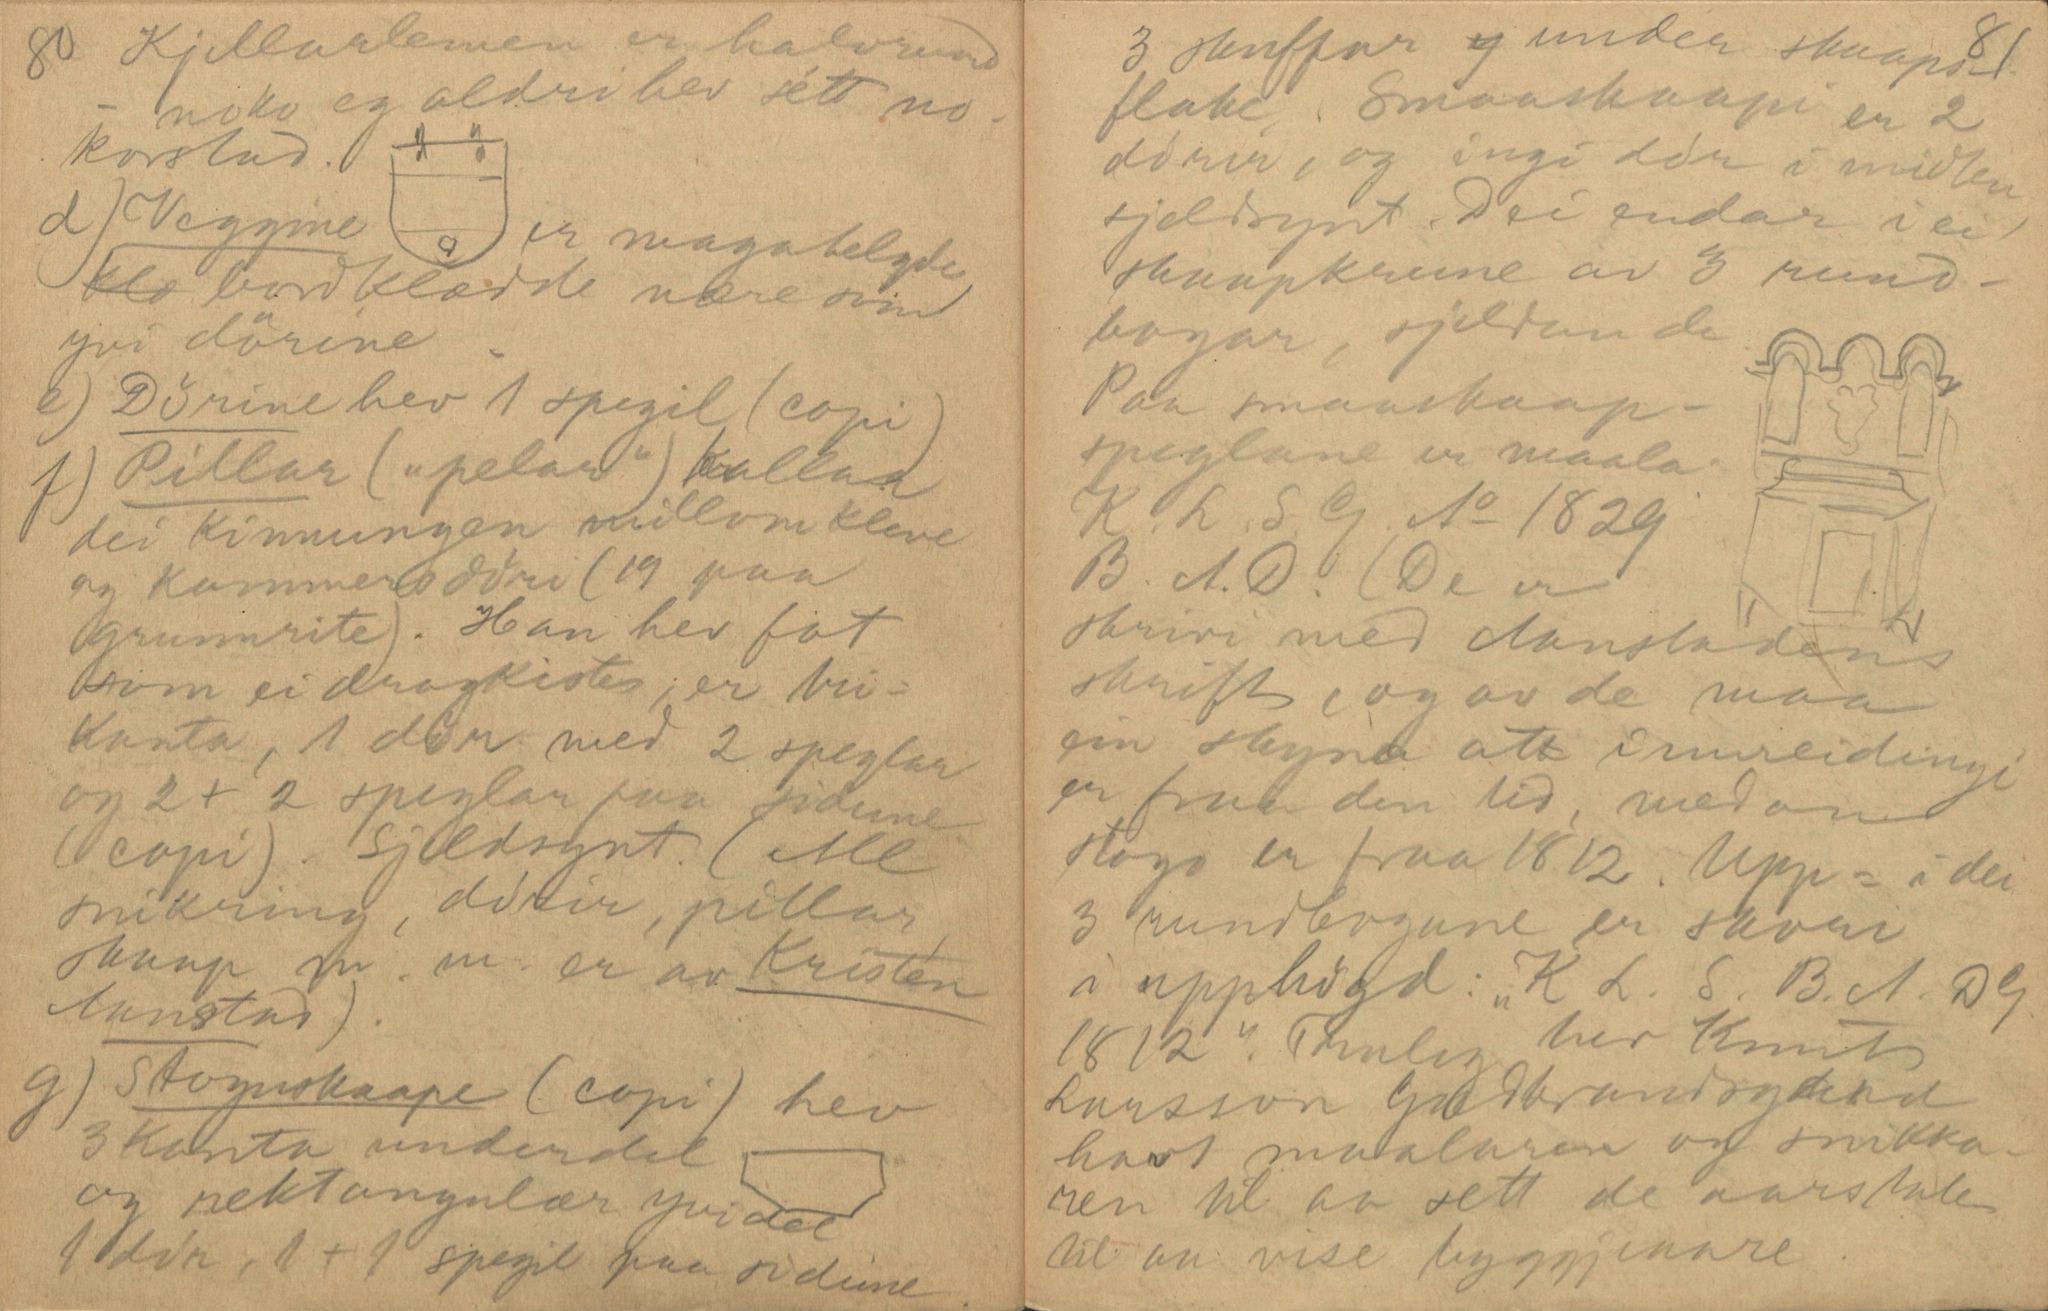 80 Kjellarlemen er halvrund
- noko eg aldri hev sétt no-
korstad.
d) Veggine er magahelgde
klæ bordklædde nære som
yvi dörine.
e) Dörine hev 1 spegil (copi)
f) Pillar („pelar") kallaa
dei kinnungen millom kleve
og kammersdöri (19 paa
grunnrite). Han hev fot
som ei dragkiste, er tri-
kanta, 1 dör med 2 speglar
og 2 + 2 speglar paa sidune
(copi). Sjeldsynt. (All
snikring, dörir, pillar,
skaap m. m. er av Kristen
Aanstad).
g) Stoguskaape (copi) hev
3 kanta underdel
og rektangulær yvidel
1 dör, 1 + 1 spegil paa sidune
81
3 skuffor og under skaaps-
flate. Smaaskaapi er 2
dörir, og ingi dör i midten,
sjeldsynt. Dei endar i ei
skaapkrune av 3 rund-
bogar, sjeldan de
Paa smaaskaap-
speglane er maala:
K. L. S. G. No 1829
B. A. D. (De er
skrivi med Aanstadens
skrift, og av de maa
ein skyna att innreidingi
er fraa den tid, medan
stogo er fraa 1812. Upp- i dei
3 rundbogane er skori
i upphögd: „K L. S. B. A. D G
1812". Truleg hev Knut
Larsson Gudbrandsgard
havt maalaren og snikka-
ren til aa sett de aarstale
til aa vise byggjeaare.